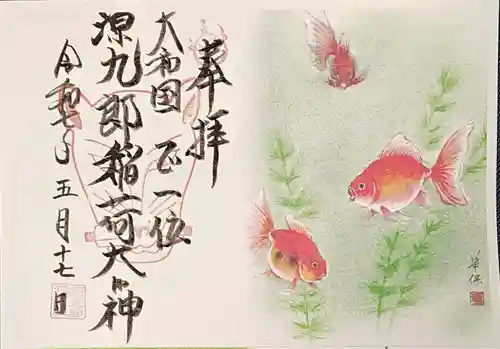 奉拝
大和国 正一位
源九郎稲荷大明神
令和七年五月十七日
華保